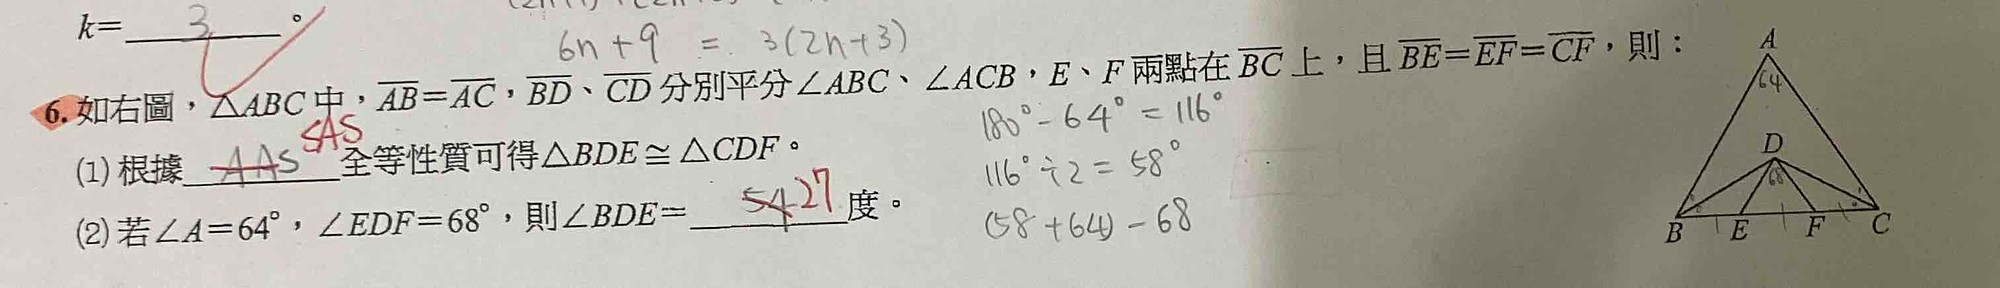 k= 3 。
6n+9 = 3(2n+3)
6. 如右圖，△ABC中，AB=AC，BD、CD分別平分∠ABC、∠ACB，E、F兩點在BC上，且BE=EF=CF，則：
(1) 根據 AAS SAS 全等性質可得△BDE≅△CDF。
(2) 若∠A=64°，∠EDF=68°，則∠BDE= 54 27 度。
180°-64°=116°
116°÷2=58°
(58+64)-68
A
64
D
68
B E F C